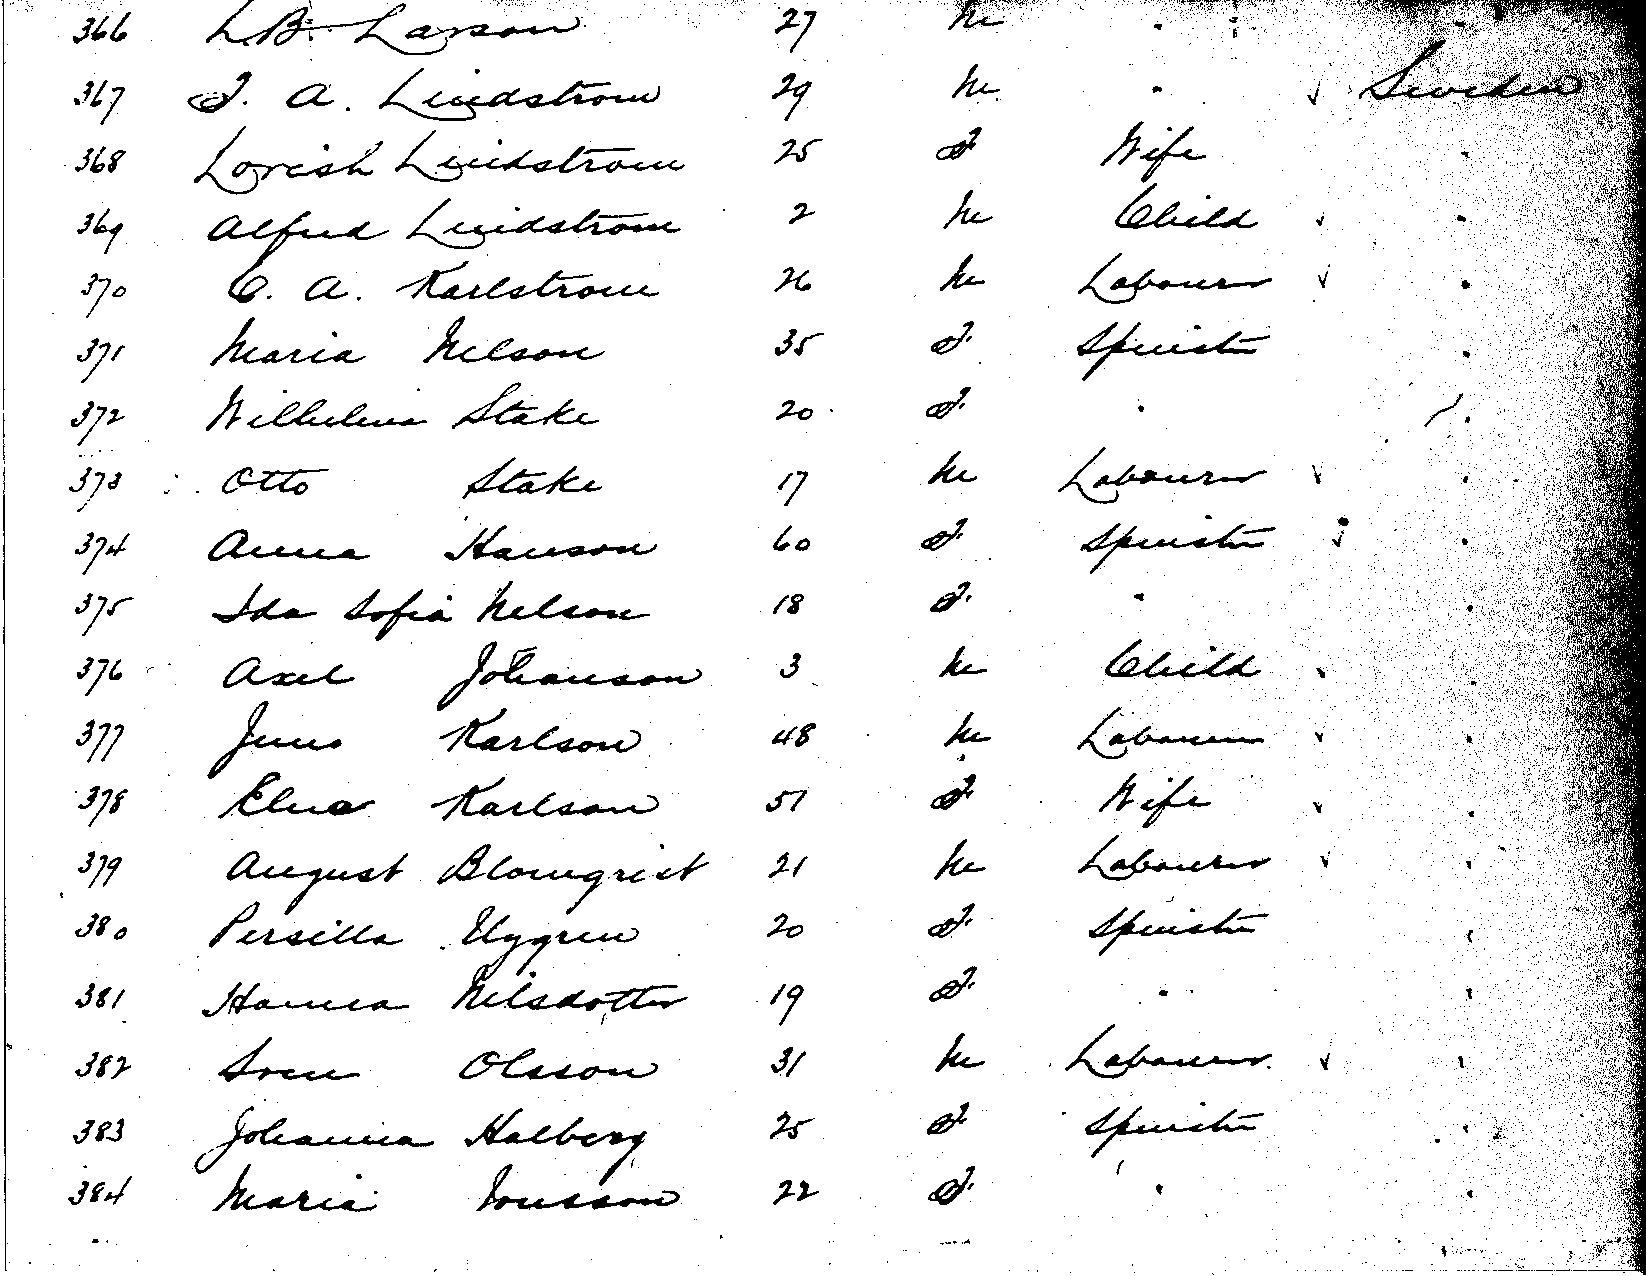 366 L. B. Larson 27 M "
367 F. A. Lindstrom 29 M " Sweden
368 Lovish Lindstrom 25 F Wife "
369 Alfred Lindstrom 2 M Child "
370 C. A. Karlstrom 26 M Labourer "
371 Maria Nelson 35 F Spinster "
372 Wilhelmina Stake 20 F " "
373 Otto Stake 17 M Labourer "
374 Anna Hanson 60 F Spinster "
375 Ida Sofia Nelson 18 F " "
376 Axel Johanson 3 M Child "
377 Juns Karlson 48 M Labourer "
378 Elna Karlson 51 F Wife "
379 August Blomqrist 21 M Labourer "
380 Persilla Uggren 20 F Spinster "
381 Hanna Nilsdotter 19 F " "
382 Sven Olsson 31 M Labourer "
383 Johanna Halberg 25 F Spinster "
384 Maria Jonsson 22 F " "